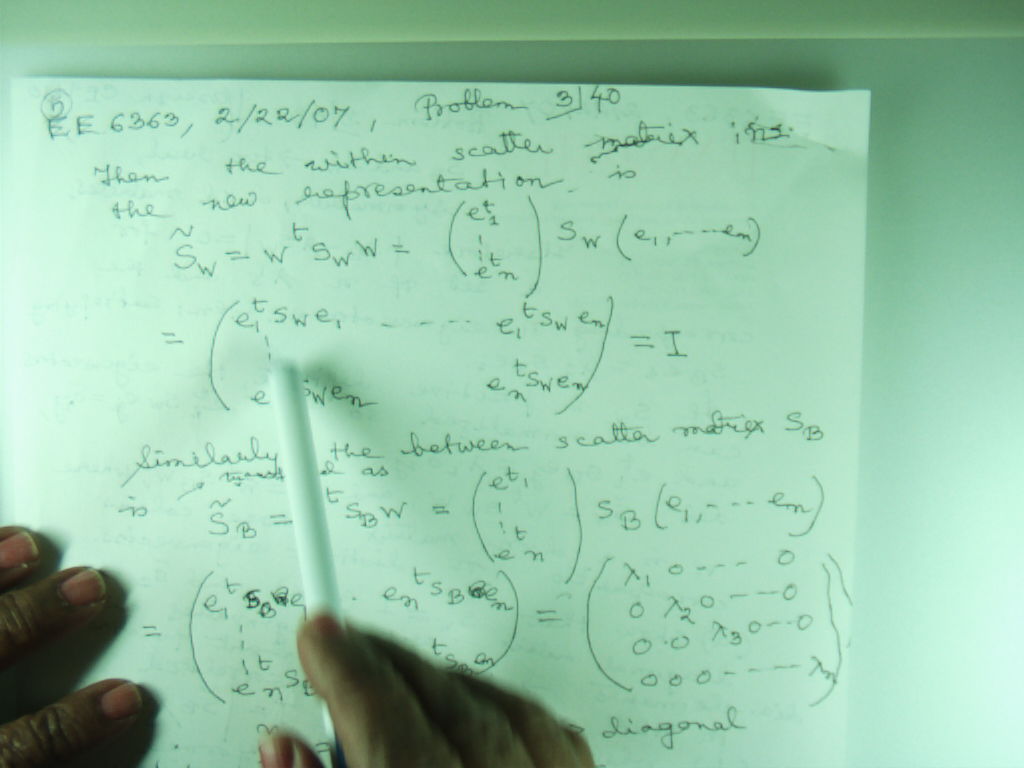 5
EE 6363, 2/22/07, Problem 3/40
Then the within scatter matrix in
the new representation is
S̃_W = W^t S_W W = ( e_1^t ⋮ e_n^t ) S_W ( e_1, ---- e_n )
= ( e_1^t S_W e_1 ---- e_1^t S_W e_n
e S_W e_n e_n^t S_W e_n ) = I
Similarly the between scatter matrix S_B
is as
S̃_B = ^t S_B W = ( e^t_1 ⋮ e^t_n ) S_B ( e_1, --- e_n )
= ( e_1^t S_B e . e_n^t S_B e_n = ( λ_1 0 --- 0
0 λ_2 0 --- 0
0 0 λ_3 0 -- 0
e_n^t S_B ^t S e_n ) 0 0 0 ---- λ_n )
diagonal